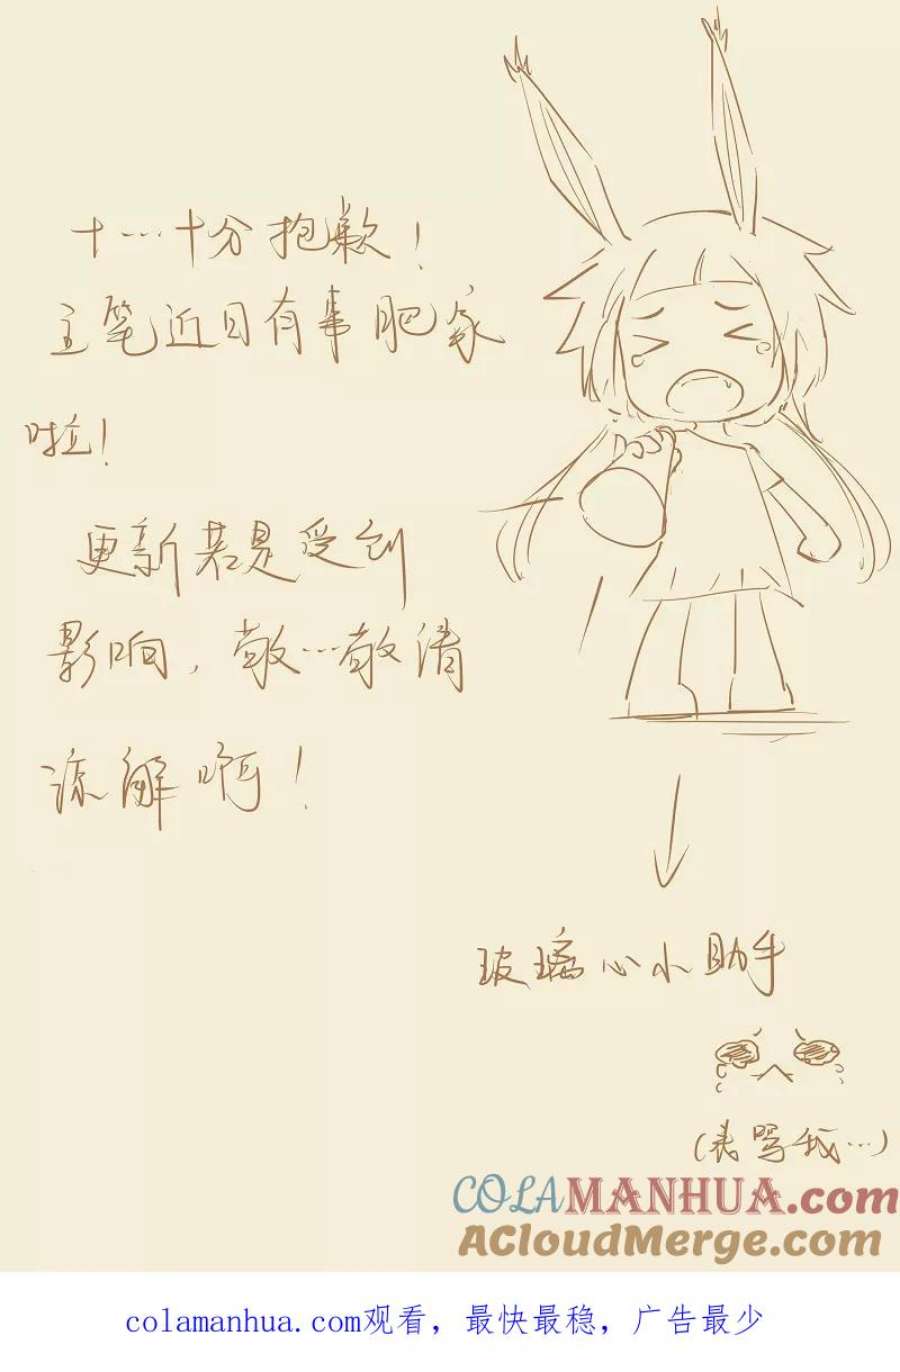 十…十分抱歉!
主笔近日有事肥家
啦!
更新若是受到
影响,敬…敬请
谅解啊!
玻璃心小助手
(表骂我…)
COLAMANHUA.com
ACloudMerge.com
colamanhua.com观看，最快最稳，广告最少